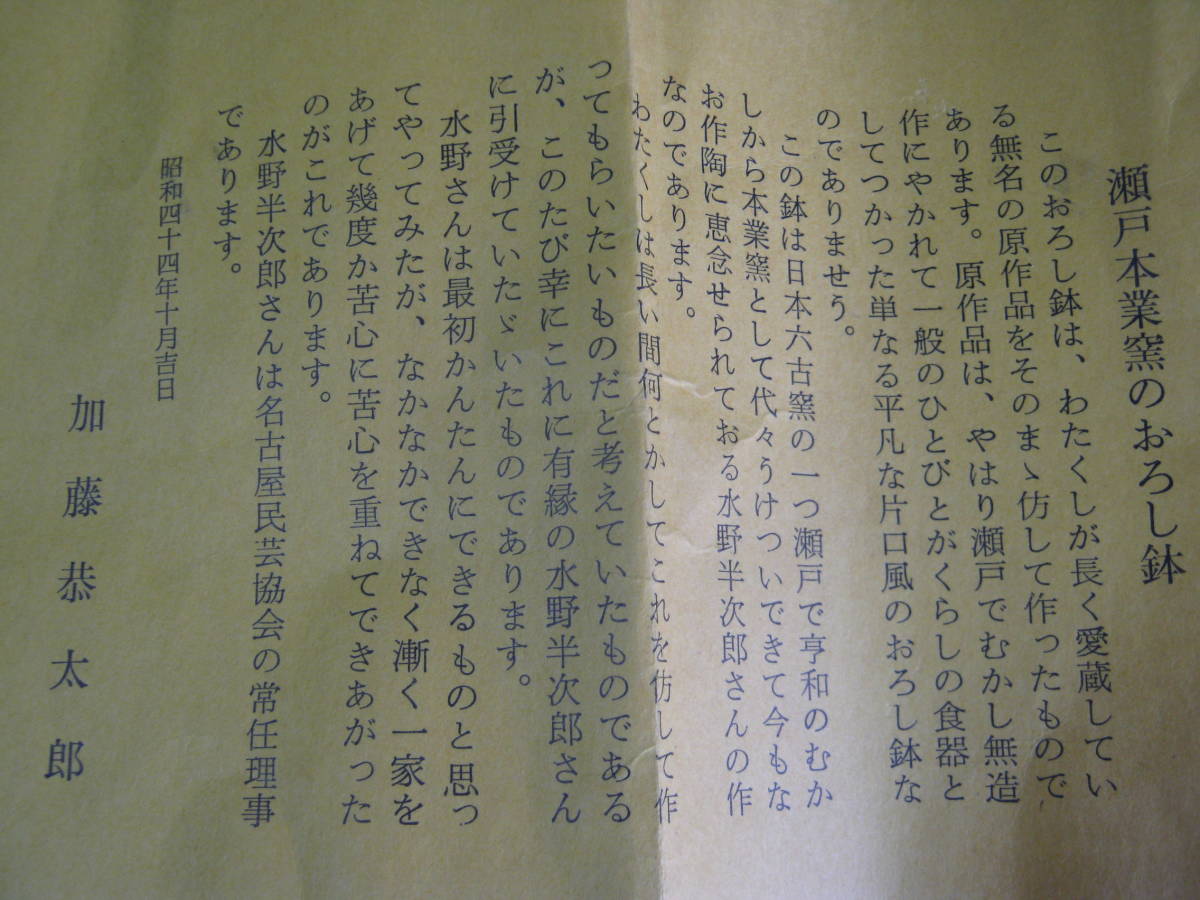 瀬戸本業窯のおろし鉢
このおろし鉢は、わたくしが長く愛蔵してい
る無名の原作品をそのまゝ仿して作ったもので
あります。原作品は、やはり瀬戸でむかし無造
作にやかれて一般のひとびとがくらしの食器と
してつかった単なる平凡な片口風のおろし鉢な
のでありませう。
この鉢は日本六古窯の一つ瀬戸で亨和のむか
しから本業窯として代々うけついできて今もな
お作陶に恵念せられておる水野半次郎さんの作
なのであります。
わたくしは長い間何とかしてこれを仿して作
ってもらいたいものだと考えていたものである
が、このたび幸にこれに有縁の水野半次郎さん
に引受けていたゞいたものであります。
水野さんは最初かんたんにできるものと思っ
てやってみたが、なかなかできなく漸く一家を
あげて幾度か苦心に苦心を重ねてできあがった
のがこれであります。
水野半次郎さんは名古屋民芸協会の常任理事
であります。
昭和四十四年十月吉日
加藤恭太郎